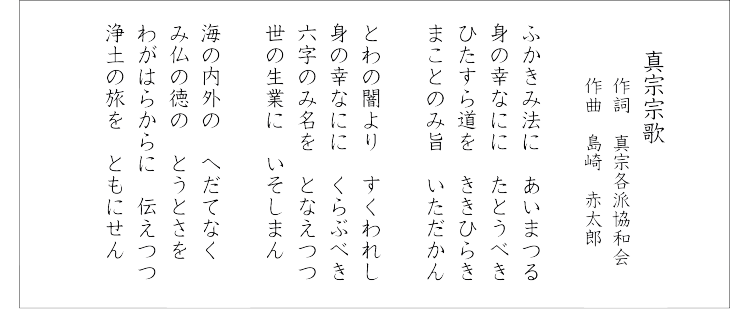 真宗宗歌
作詞　真宗各派協和会
作曲　島崎　赤太郎
ふかきみ法に　あいまつる
身の幸なにに　たとうべき
ひたすら道を　ききひらき
まことのみ旨　いただかん
とわの闇より　すくわれし
身の幸なにに　くらぶべき
六字のみ名を　となえつつ
世の生業に　いそしまん
海の内外の　へだてなく
み仏の徳の　とうとさを
わがはらからに　伝えつつ
浄土の旅を　ともにせん